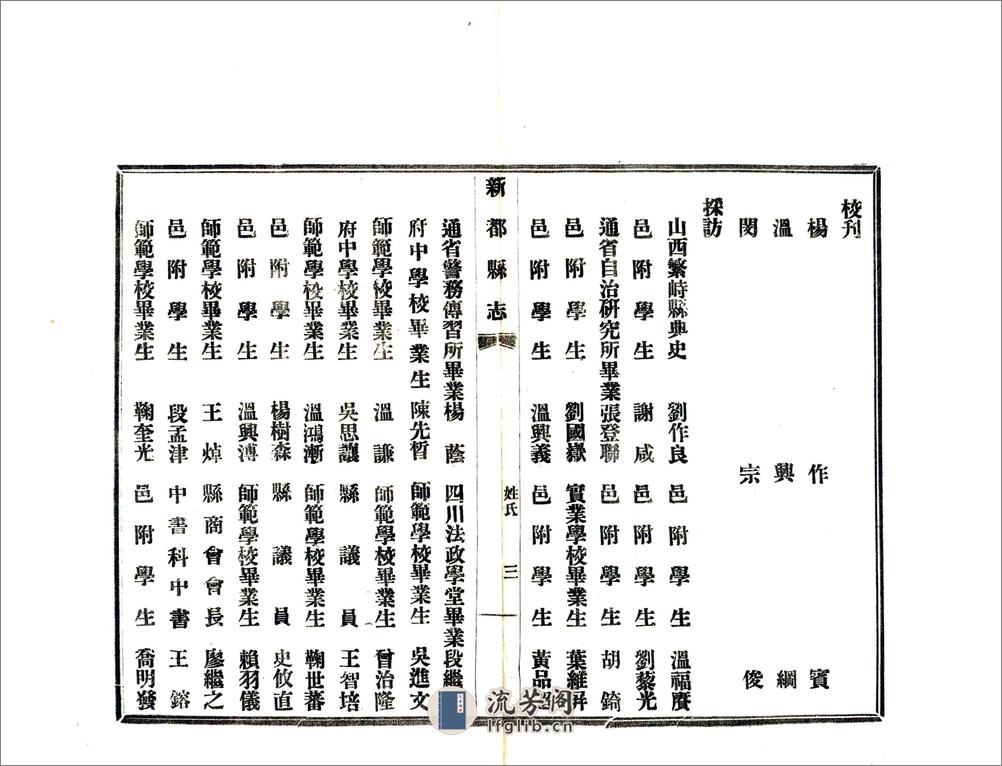 校刊
楊作賓
溫興綱
閔宗俊
採訪
山西繁峙縣典史 劉作良 邑附學生 溫福賡
邑附學生 謝咸 邑附學生 劉藜光
通省自治研究所畢業 張登聯 邑附學生 胡錡
邑附學生 劉國嶽 實業學校畢業生 葉維屏
邑附學生 溫興義 邑附學生 黃品
新都縣志 姓氏 三
通省警務傳習所畢業 楊蔭 四川法政學堂畢業 段繼
府中學校畢業生 陳先晳 師範學校畢業生 吳進文
師範學校畢業生 溫謙 師範學校畢業生 曾治隆
府中學校畢業生 吳思讓 縣議員 王智培
師範學校畢業生 溫鴻漸 師範學校畢業生 鞠世蕃
邑附學生 楊樹森 縣議員 史攸直
邑附學生 溫興溥 師範學校畢業生 賴羽儀
師範學校畢業生 王焯 縣商會會長 廖繼之
邑附學生 段孟津 中書科中書 王鎔
師範學校畢業生 鞠奎光 邑附學生 喬明發
流芳阁
lfglib.cn